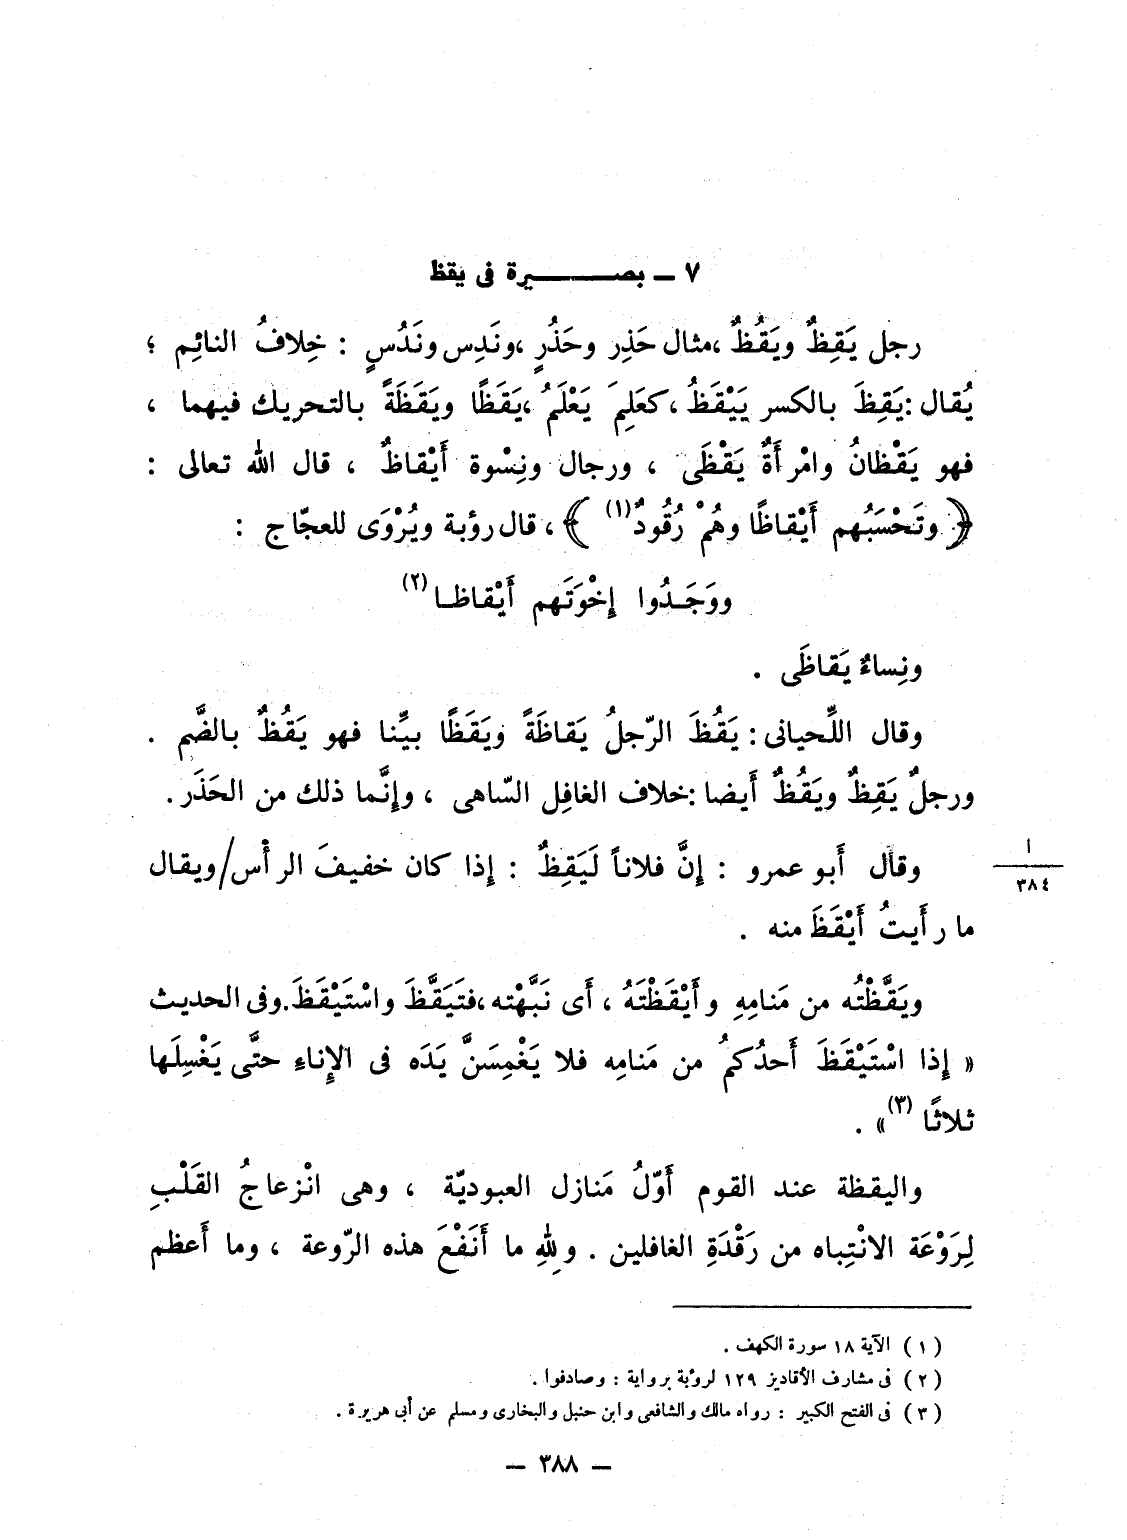 ٧ ــ بصـــــــيرة فى يقظ
رجل يَقِظٌ ويَقُظٌ ،مثال حَذِر وحَذُرٍ ،ونَدِس ونَدُسٍ : خِلافُ النائِم ؛
يُقال :يَقِظَ بالكسر يَيْقَظُ ،كعَلِمَ يَعْلَمُ ،يَقَظًا ويَقَظَةً بالتحريك فيهما ،
فهو يَقْظانُ وامْرأَةٌ يَقْظَى ، ورجال ونِسْوة أَيْقاظٌ ، قال الله تعالى :
﴿ وتَحْسَبُهم أَيْقاظًا وهُمْ رُقُودٌ(١) ﴾ ، قال رؤبة ويُرْوَى للعجّاج :
ووَجَــدُوا إِخْوَتَهم أَيْقاظـا(٢)
ونِساءٌ يَقاظَى .
وقال اللِّحيانى : يَقُظَ الرّجلُ يَقاظَةً ويَقَظًا بيِّنا فهو يَقُظٌ بالضَّم .
ورجلٌ يَقِظٌ ويَقُظٌ أَيضا :خلاف الغافِل السّاهى ، وإِنَّما ذلك من الحَذَر .
وقال أَبو عمرو : إِنَّ فلاناً لَيَقِظٌ : إِذا كان خفيفَ الرأْس/ويقال
ا
٣٨٤
ما رأَيتُ أَيْقَظَ منه .
ويَقَّظْتُه من مَنامِهِ وأَيْقَظْتَهُ ، أَى نَبَّهْته ،فتَيَقَّظَ واسْتَيْقَظَ .وفى الحديث
« إِذا اسْتَيْقَظَ أَحدُكمُ من مَنامِه فلا يَغْمِسَنَّ يَدَه فى الإِناءِ حتَّى يَغْسِلَها
ثلاثًا (٣)» .
واليقظة عند القوم أَوّلُ مَنازل العبوديّة ، وهى انْزعاجُ القَلْبِ
لِرَوْعَة الانْتِباه من رَقْدَةِ الغافلين . وللهِ ما أَنَفْعَ هذه الرّوعة ، وما أَعظم
( ١ ) الآية ١٨ سورة الكهف .
( ٢ ) فى مشارف الأقاديز ١٢٩ لرؤبة برواية : وصادفوا .
( ٣ ) فى الفتح الكبير : رواه مالك والشافعى وابن حنبل والبخارى ومسلم عن أبى هريرة .
ــ ٣٨٨ ــ